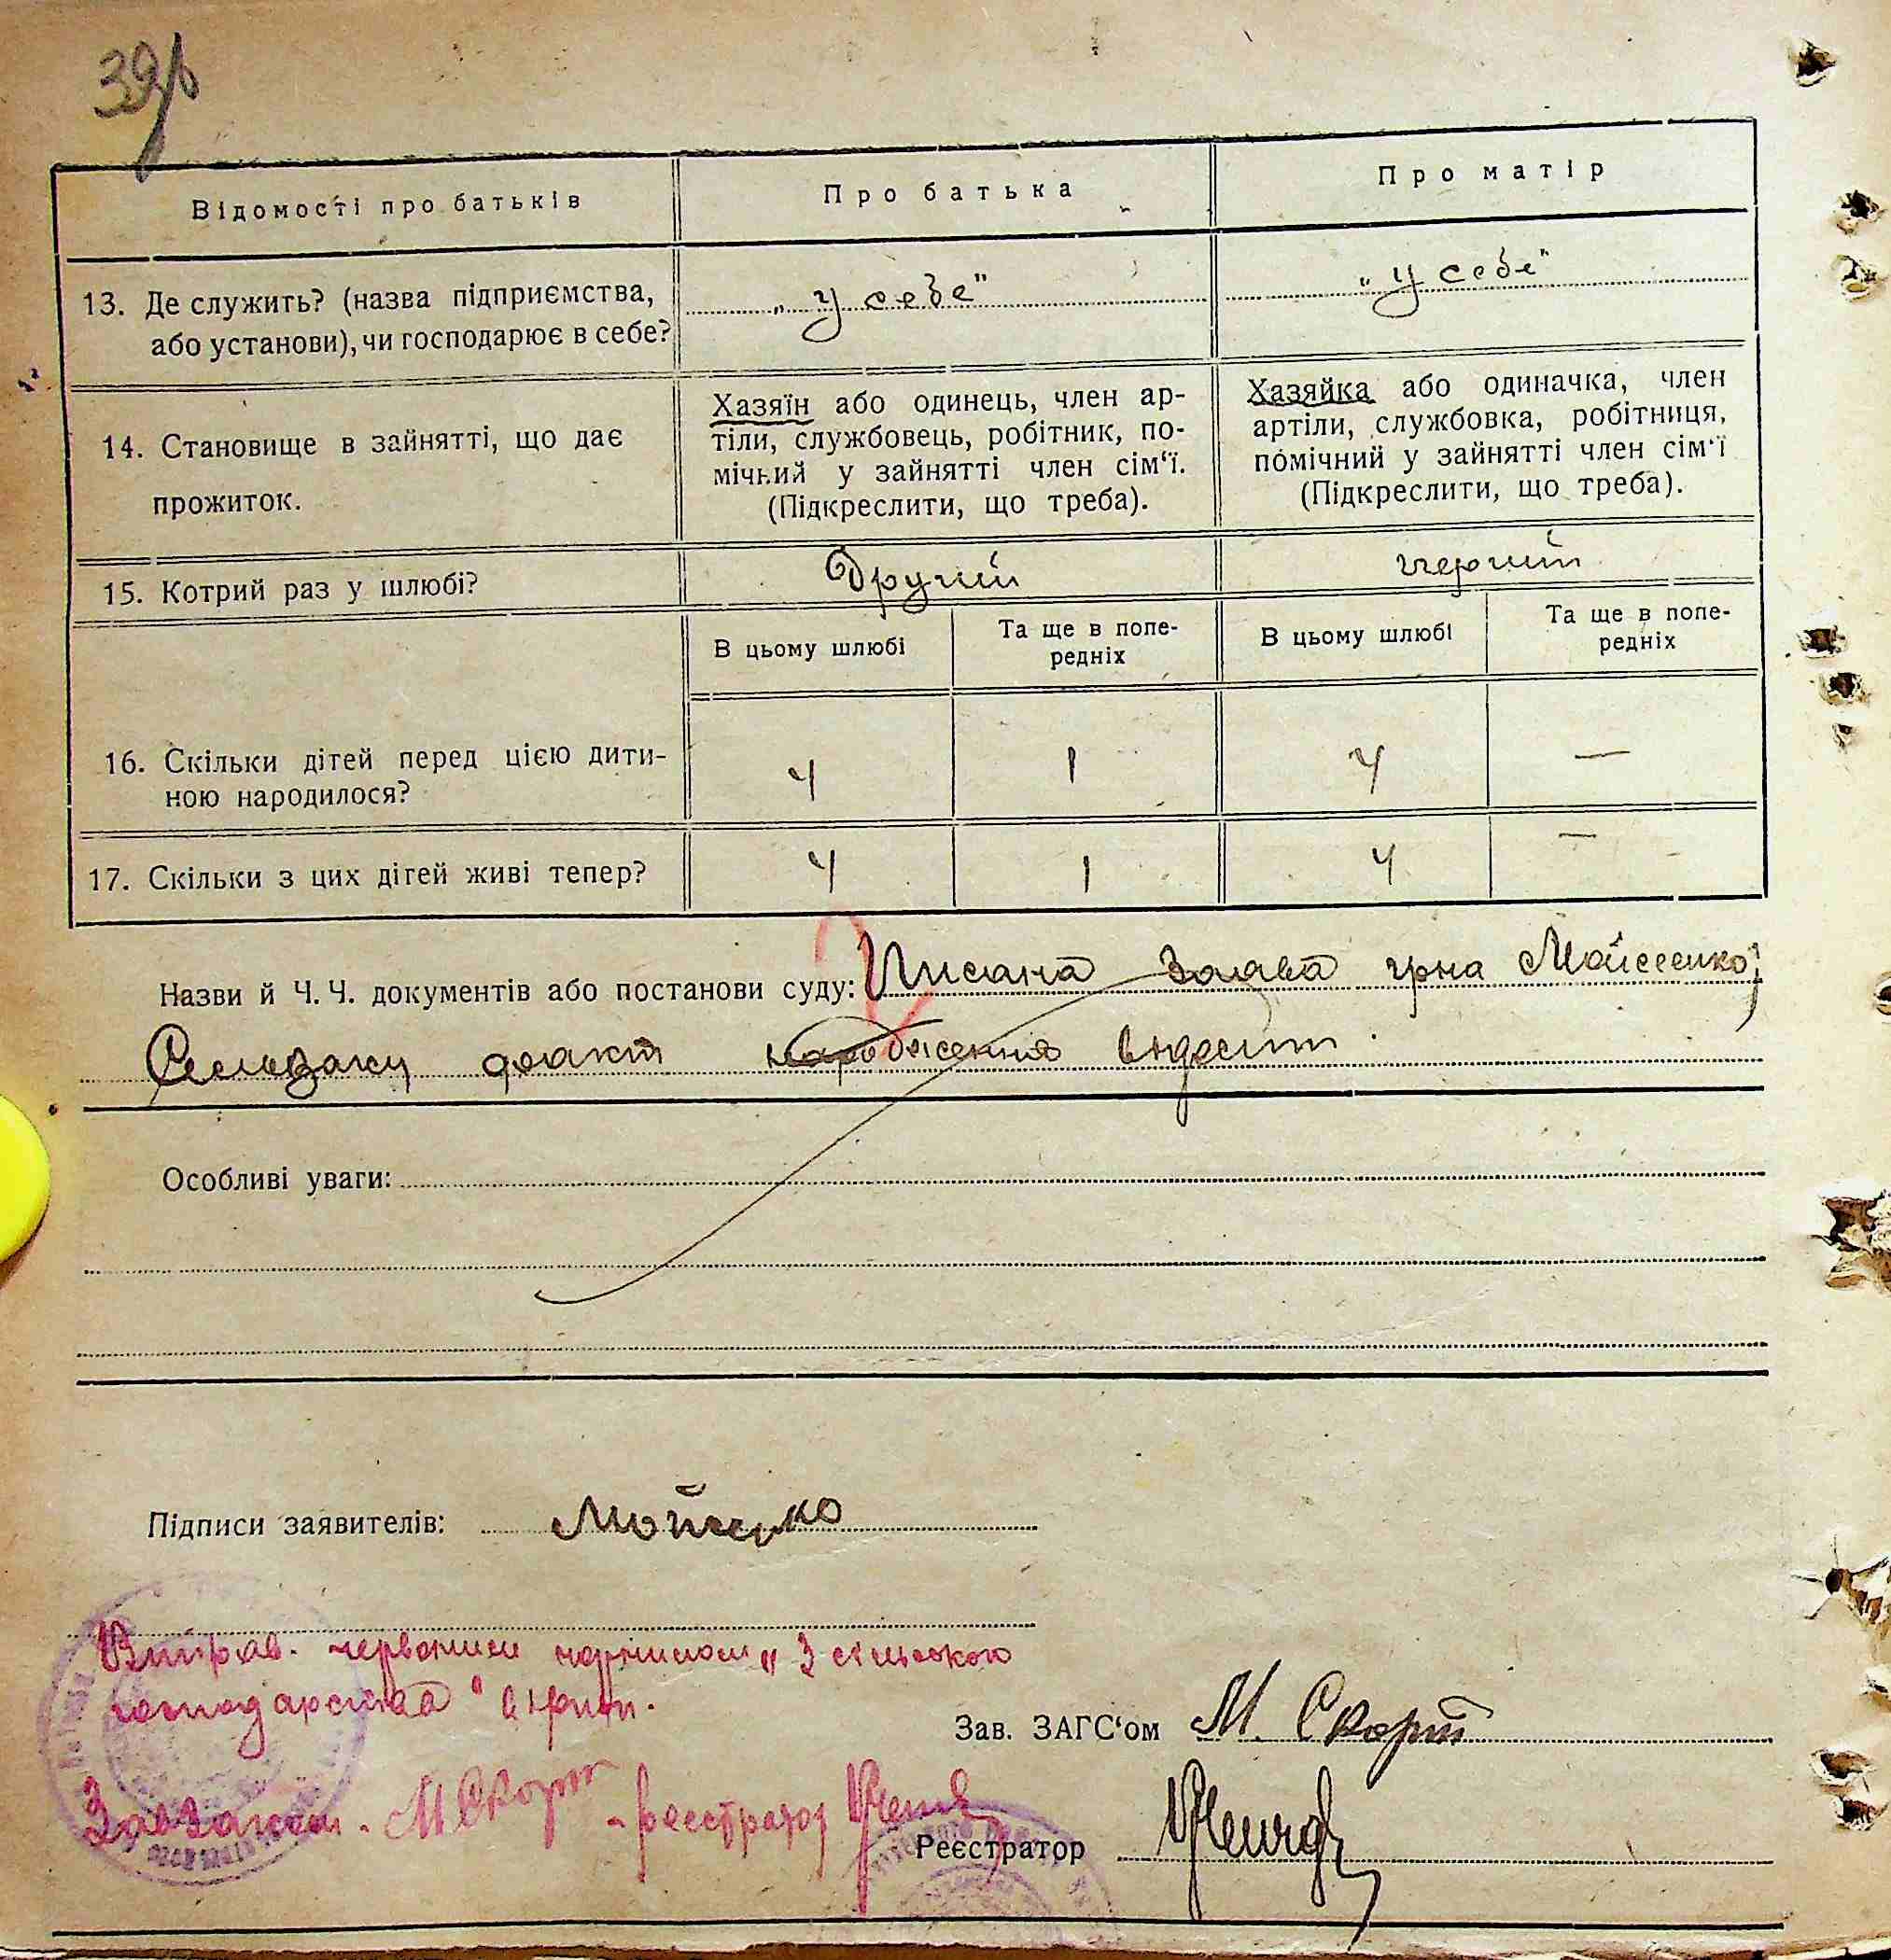 39
Відомості про батьків
Про батька
Про матір
13. Де служить? (назва підприємства,
або установи), чи господарює в себе?
„у себе"
„у себе"
14. Становище в зайнятті, що дає
прожиток.
Хазяїн або одинець, член ар-
тіли, службовець, робітник, по-
мічний у зайнятті член сім'ї.
(Підкреслити, що треба).
Хазяйка або одиначка, член
артіли, службовка, робітниця,
помічний у зайнятті член сім'ї
(Підкреслити, що треба).
15. Котрий раз у шлюбі?
Другий
перший
В цьому шлюбі
Та ще в попе-
редніх
В цьому шлюбі
Та ще в попе-
редніх
16. Скільки дітей перед цією дити-
ною народилося?
4
1
4
—
17. Скільки з цих дітей живі тепер?
4
1
4
—
Назви й Ч. Ч. документів або постанови суду: Писана заява гр-на Мойсеенко,
факт народження
Особливі уваги:
Підписи заявителів: Мойсенко
Виправ. червоним чорнилом „З сільського
господарства" вірити.
Зав. ЗАГС'ом М. Скорт
Завзагсом. М Скорт реєстратор
Реєстратор